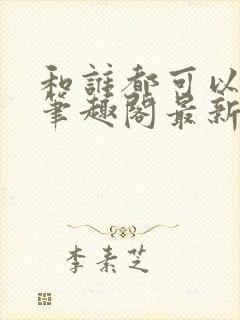 和誰都可以
筆趣閣最新
李素芝